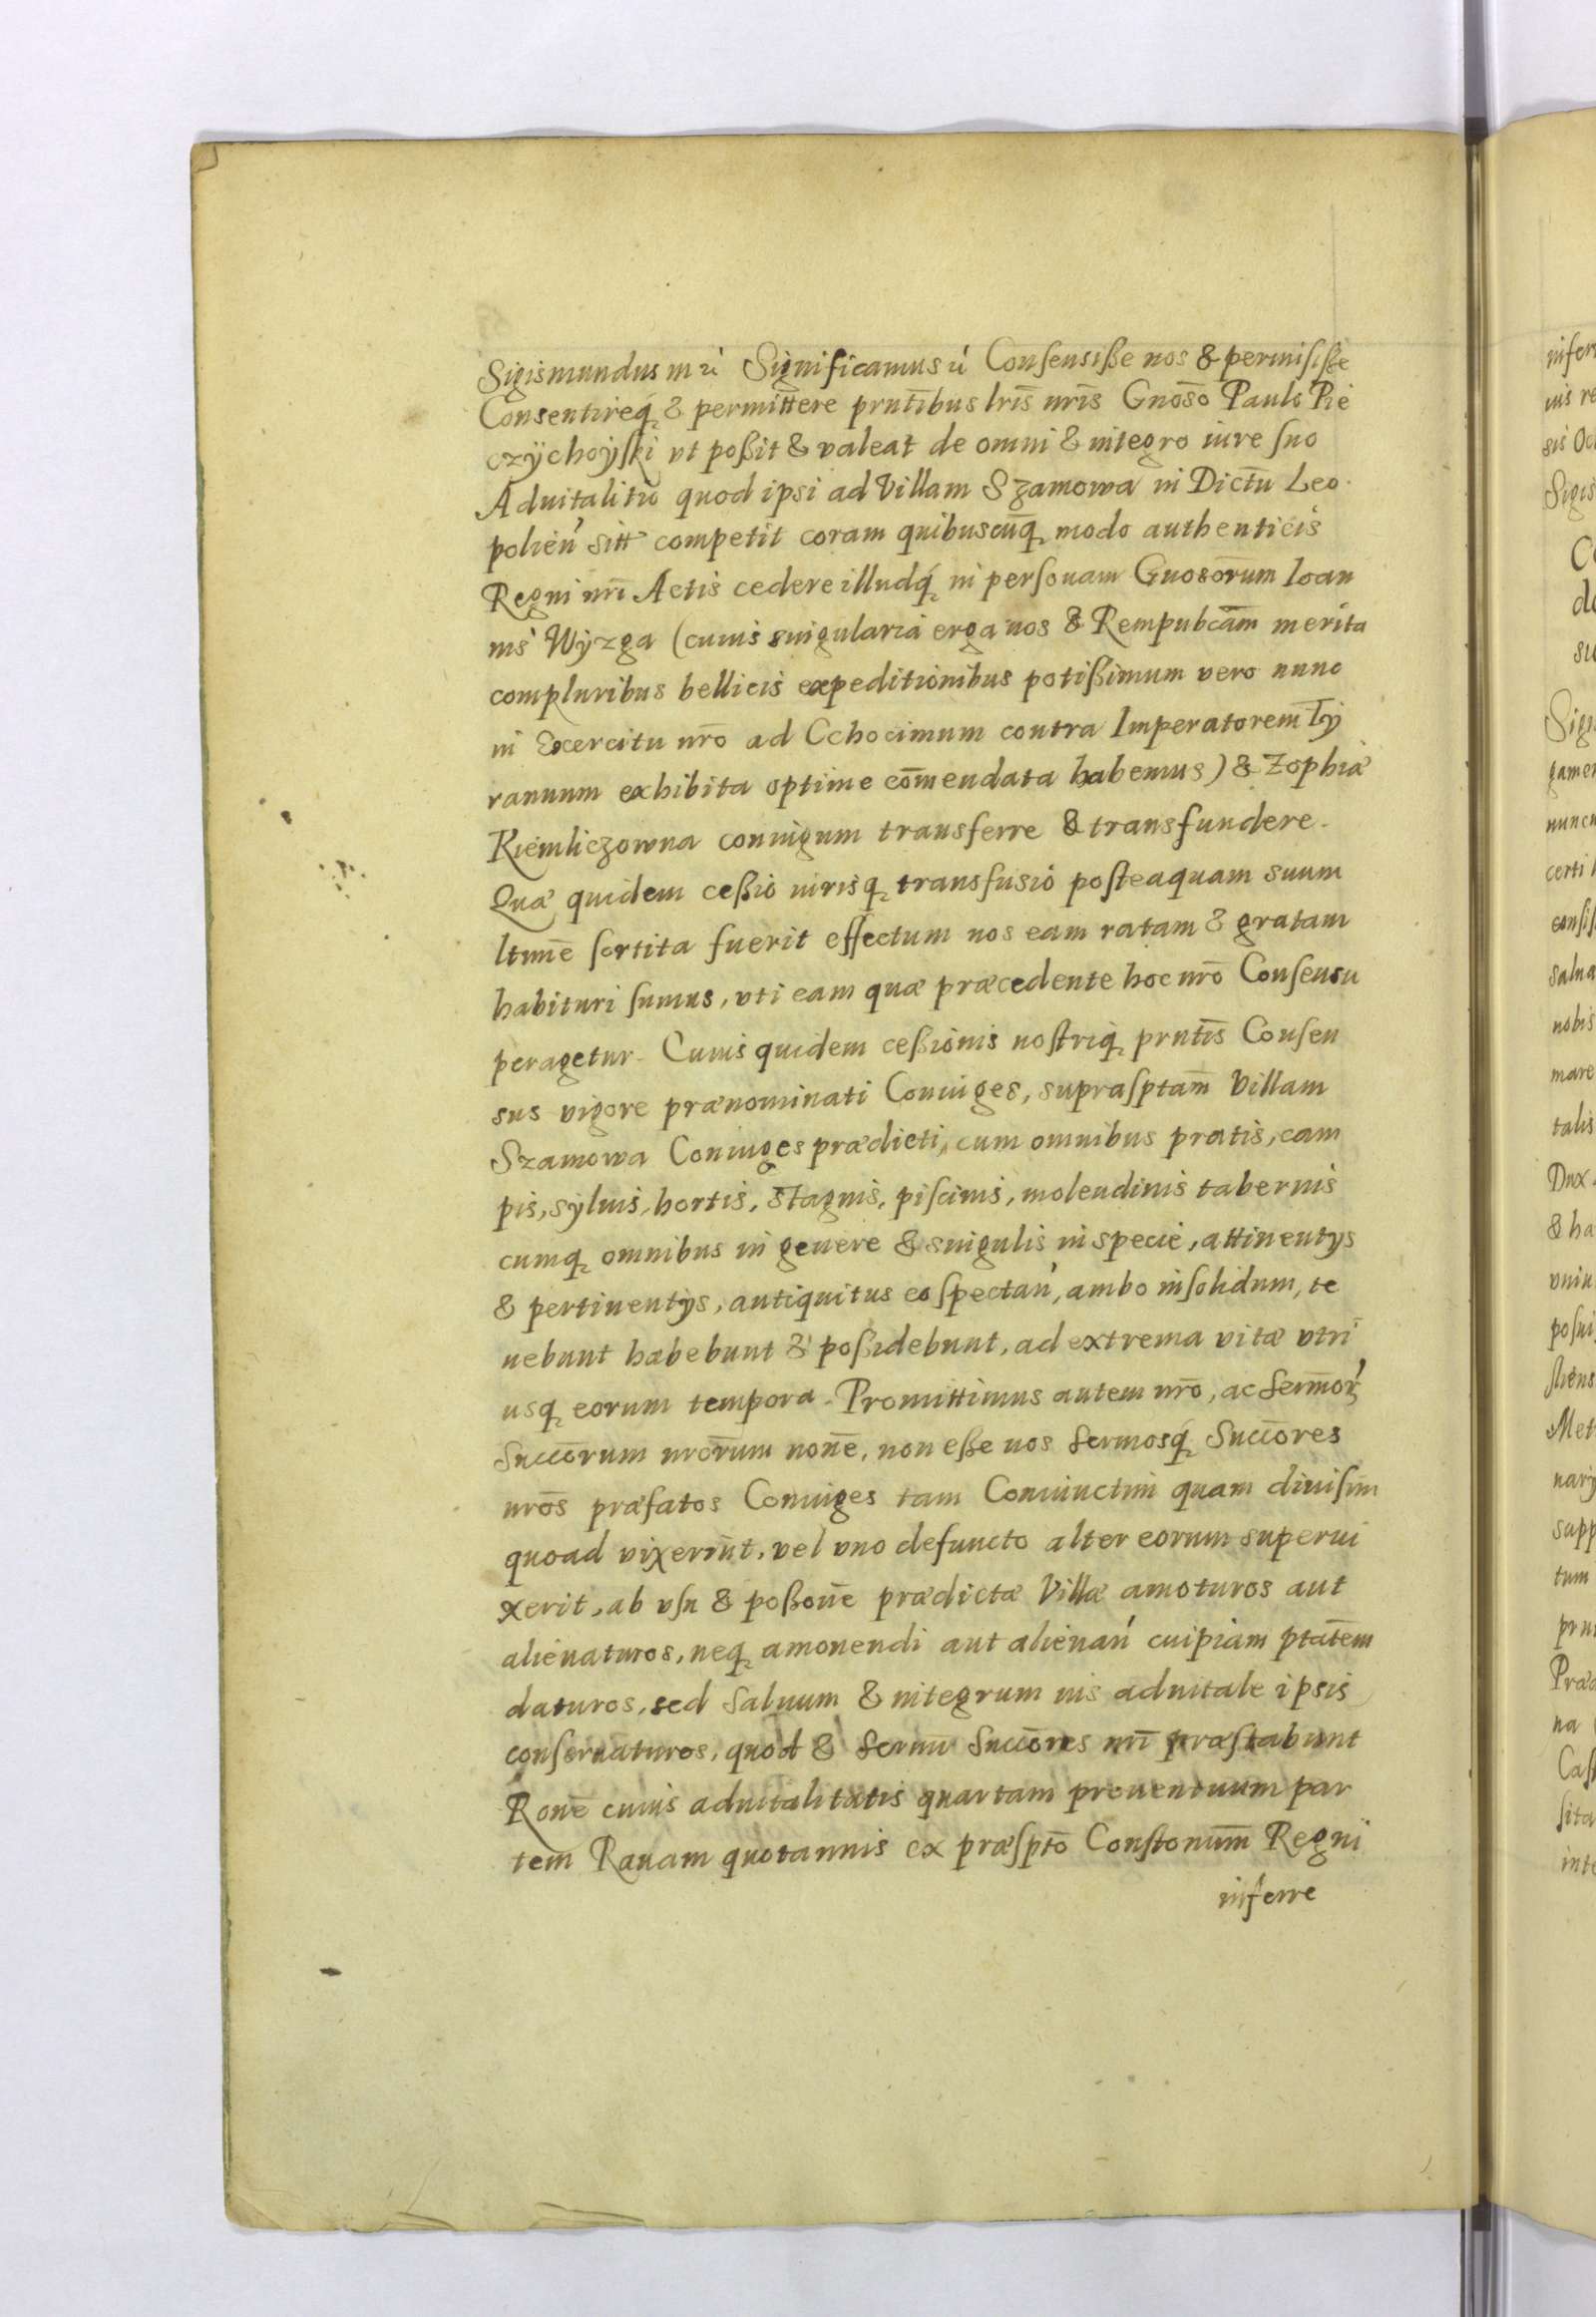 Sigismundus III ꝛć Significamus ꝛć Consensiße nos & permisiße
Consentireq́ꝫ & permitt̄ere prn̄tibus lr̄is nr̄is Gnōso Paulo Pie
czÿchoÿski vt poßit & valeat de omni & integro iure suo
Aduitalitio quod ipsi ad Villam Szamowa in Dictū Leo
polień sitt competit coram quibuscūqꝫ modo authenticis
Regni nr̄i Actis cedere illudq́ꝫ in personam Gnosōrum Ioan
nis Wÿzga (cuius singularia erga nos & Rempubcām merita
compluribus bellicis expeditionibus potißimum vero nunc
in Exercitu nr̄o ad Cchocimum contra Imperatorem Tÿ
rannum exhibita optime com̄endata habemus) & Zophiæ
Kiemliczowna coniugum transferre & transfundere.
Quæ quidem ceßio iurisqꝫ transfusio posteaquam suum
ltimē sortita fuerit effectum nos eam ratam & gratam
habituri sumus, vti eam quæ præcedente hoc nr̄o Consensu
peragetur. Cuius quidem ceßionis nostriqꝫ prn̄tis Consen
sus vigore prænominati Coniuges, suprasptam̄ Villam
Szamowa Coniuges prædicti, cum omnibus pratis, cam
pis, syluis, hortis, stagnis, piscinis, molendinis tabernis
cumqꝫ omnibus in genere & singulis in specie, attinentys
& pertinentÿs, antiquitus eo spectań, ambo insolidum, te
nebunt habebunt & poßidebunt, ad extrema vitæ vtri
usqꝫ eorum tempora. Promittimus autem nr̄o, ac Serm̄oꝝ
Succōrum nrōrum nōne, non eße nos Sermosq́ꝫ Succōres
nrōs præfatos Coniuges tam Coniunctim quam diuisim
quoad vixerint, vel vno defuncto alter eorum superui
xerit, ab vsu & poßōne prædictæ Villæ amoturos aut
alienaturos, neqꝫ amouendi aut alienań cuipiam ptātem
daturos, sed saluum & integrum ius aduitale ipsis
conseruaturos, quod & Sermī Succōres nr̄i præstabunt
Rōne cuius aduitalitatis quartam prouentuum par
tem Rauam quotannis ex præsptō Constonūm Regni
inferre